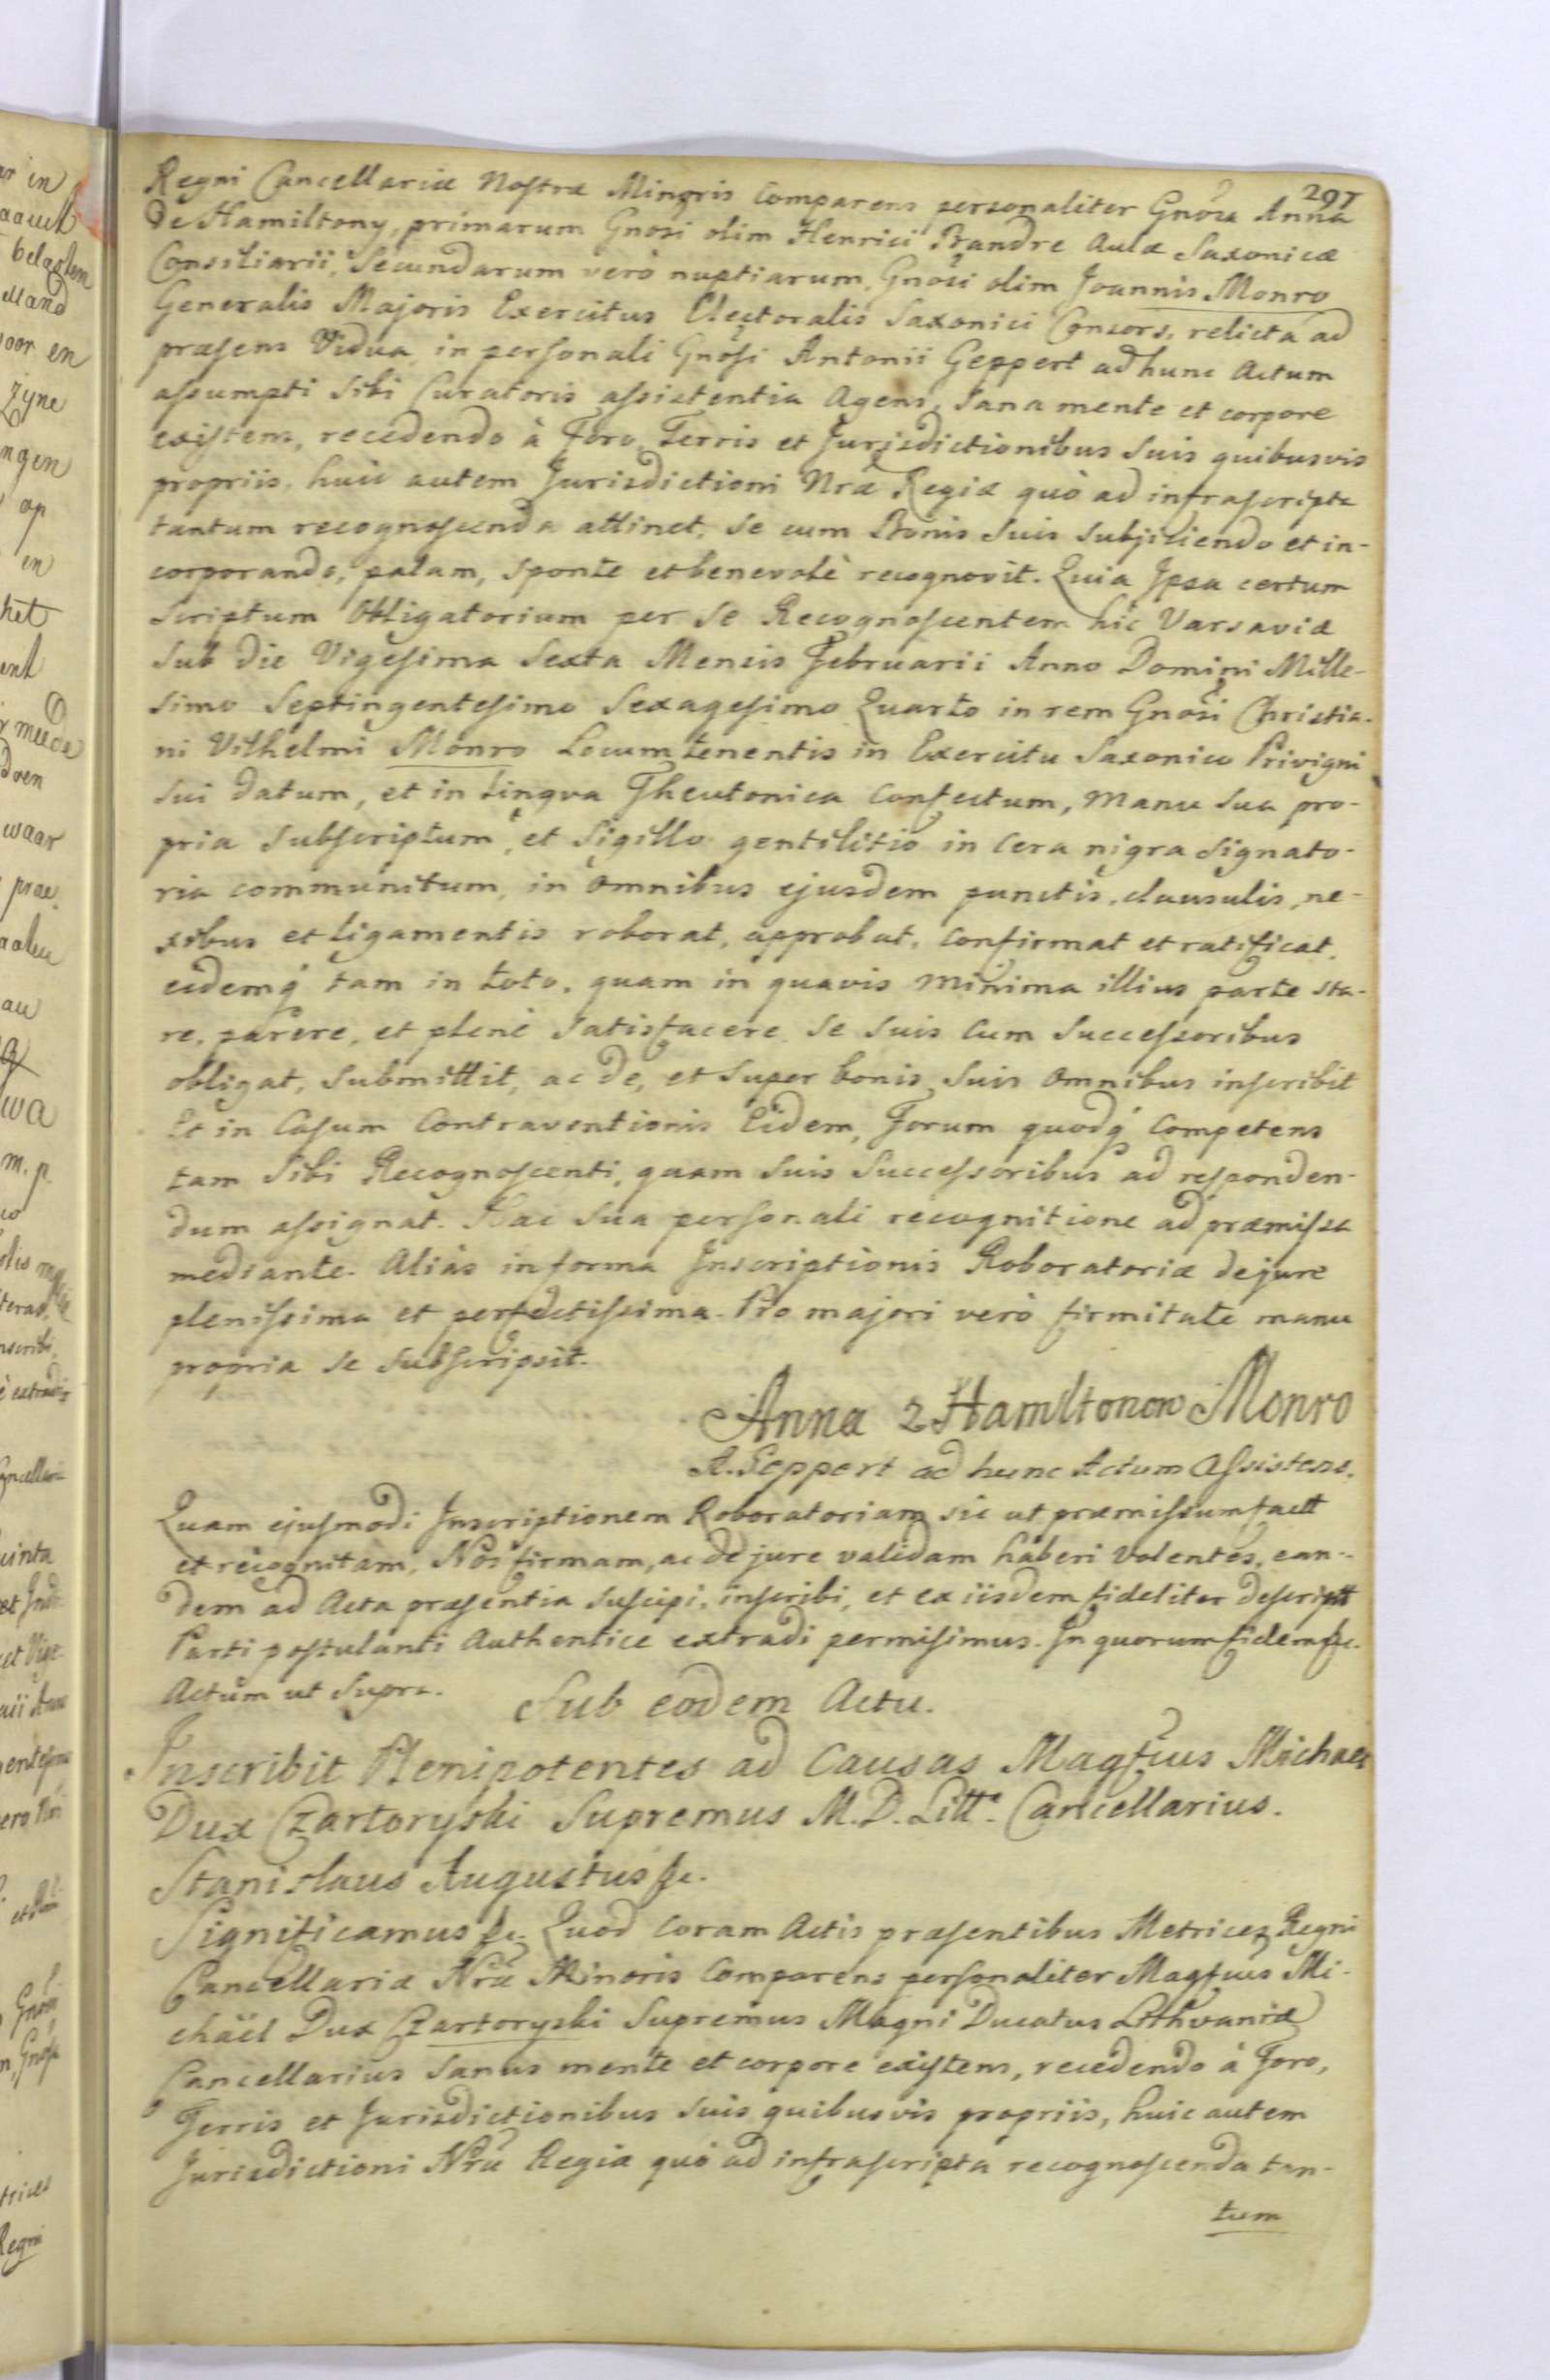 297
Regni Cancellariæ Nostræ Minoris Comparens personaliter Gnosa Anna
de Hamiltony, primarum Gnosi olim Henrici Brandre Aulæ Saxonicæ
Consiliarii, Secundarum verò nuptiarum, Gnosi olim Joannis Monro
Generalis Majoris Exercitus Electoralis Saxonici Consors, relicta ad
præsens Vidua, in personali Gnosi Antonii Geppert ad hunc Actum
assumpti sibi Curatoris assistentia Agens, Sana mente et corpore
existens, recedendo à Foro, Terris et Jurisdictionibus suis quibusvis
propriis, huic autem Jurisdictioni Nræ Regiæ quò ad infrascripta
tantum recognoscenda attinet, se cum Bonis suis subjiciendo et in-
corporando, palam, sponte et benevolè recognovit. Quia Ipsa certum
Scriptum Obligatorium per se Recognoscentem hic Varsaviæ
Sub die Vigesima Sexta Mensis Februarii Anno Domini Mille-
simo Septingentesimo Sexagesimo Quarto in rem Gnosi Christia-
ni Vilhelmi Monro Locumtenentis in Exercitu Saxonico Privigni
sui datum, et in Lingva Theutonica Confectum, manu sua pro-
pria subscriptum, et Sigillo gentilitio in Cera nigra Signato-
ria communitum, in omnibus ejusdem punctis, clausulis, ne-
xibus et ligamentis roborat, approbat, confirmat et ratificat,
eidemq́ tam in toto, quam in quavis minima illius parte sta-
re, parere, et plenè satisfacere se suis cum Successoribus
obligat, submittit, ac de, et super bonis suis omnibus inscribit
Et in Casum Contraventionis Eidem, Forum quodq́ Competens
tam sibi Recognoscenti, quam suis Successoribus ad responden-
dum assignat. Hac sua personali recognitione ad præmissa
mediante. Aliàs in forma Inscriptionis Roboratoriæ de jure
plenissima et perfectissima. Pro majori verò firmitate manu
propria se subscripsit.
Anna 2 Hamiltonow Monro
A. Geppert ad hunc Actum Assistens.
Quam ejusmodi Inscriptionem Roboratoriam sic ut præmissum factt
et recognitam, Nos firmam, ac de jure validam haberi volentes, ean-
dem ad Acta præsentia suscipi, inscribi, et ex iisdem fideliter descriptt
Parti postulanti Authentice extradi permisimus. In quorum fidem &c.
Actum ut supra.
Sub eodem Actu.
Inscribit Plenipotentes ad Causas Magfcus Michael
Dux Czartoryski Supremus M. D. Litt. Cancellarius.
Stanislaus Augustus &c.
Significamus &c. Quod coram Actis præsentibus Metrices Regni
Cancellariæ Nræ Minoris Comparens personaliter Magfcus Mi-
chäel Dux Czartoryski Supremus Magni Ducatus Lithvaniæ
Cancellarius Sanus mente et corpore existens, recedendo à Foro,
Terris et Jurisdictionibus suis quibusvis propriis, huic autem
Jurisdictioni Nræ Regiæ quò ad infrascripta recognoscenda tan-
tum